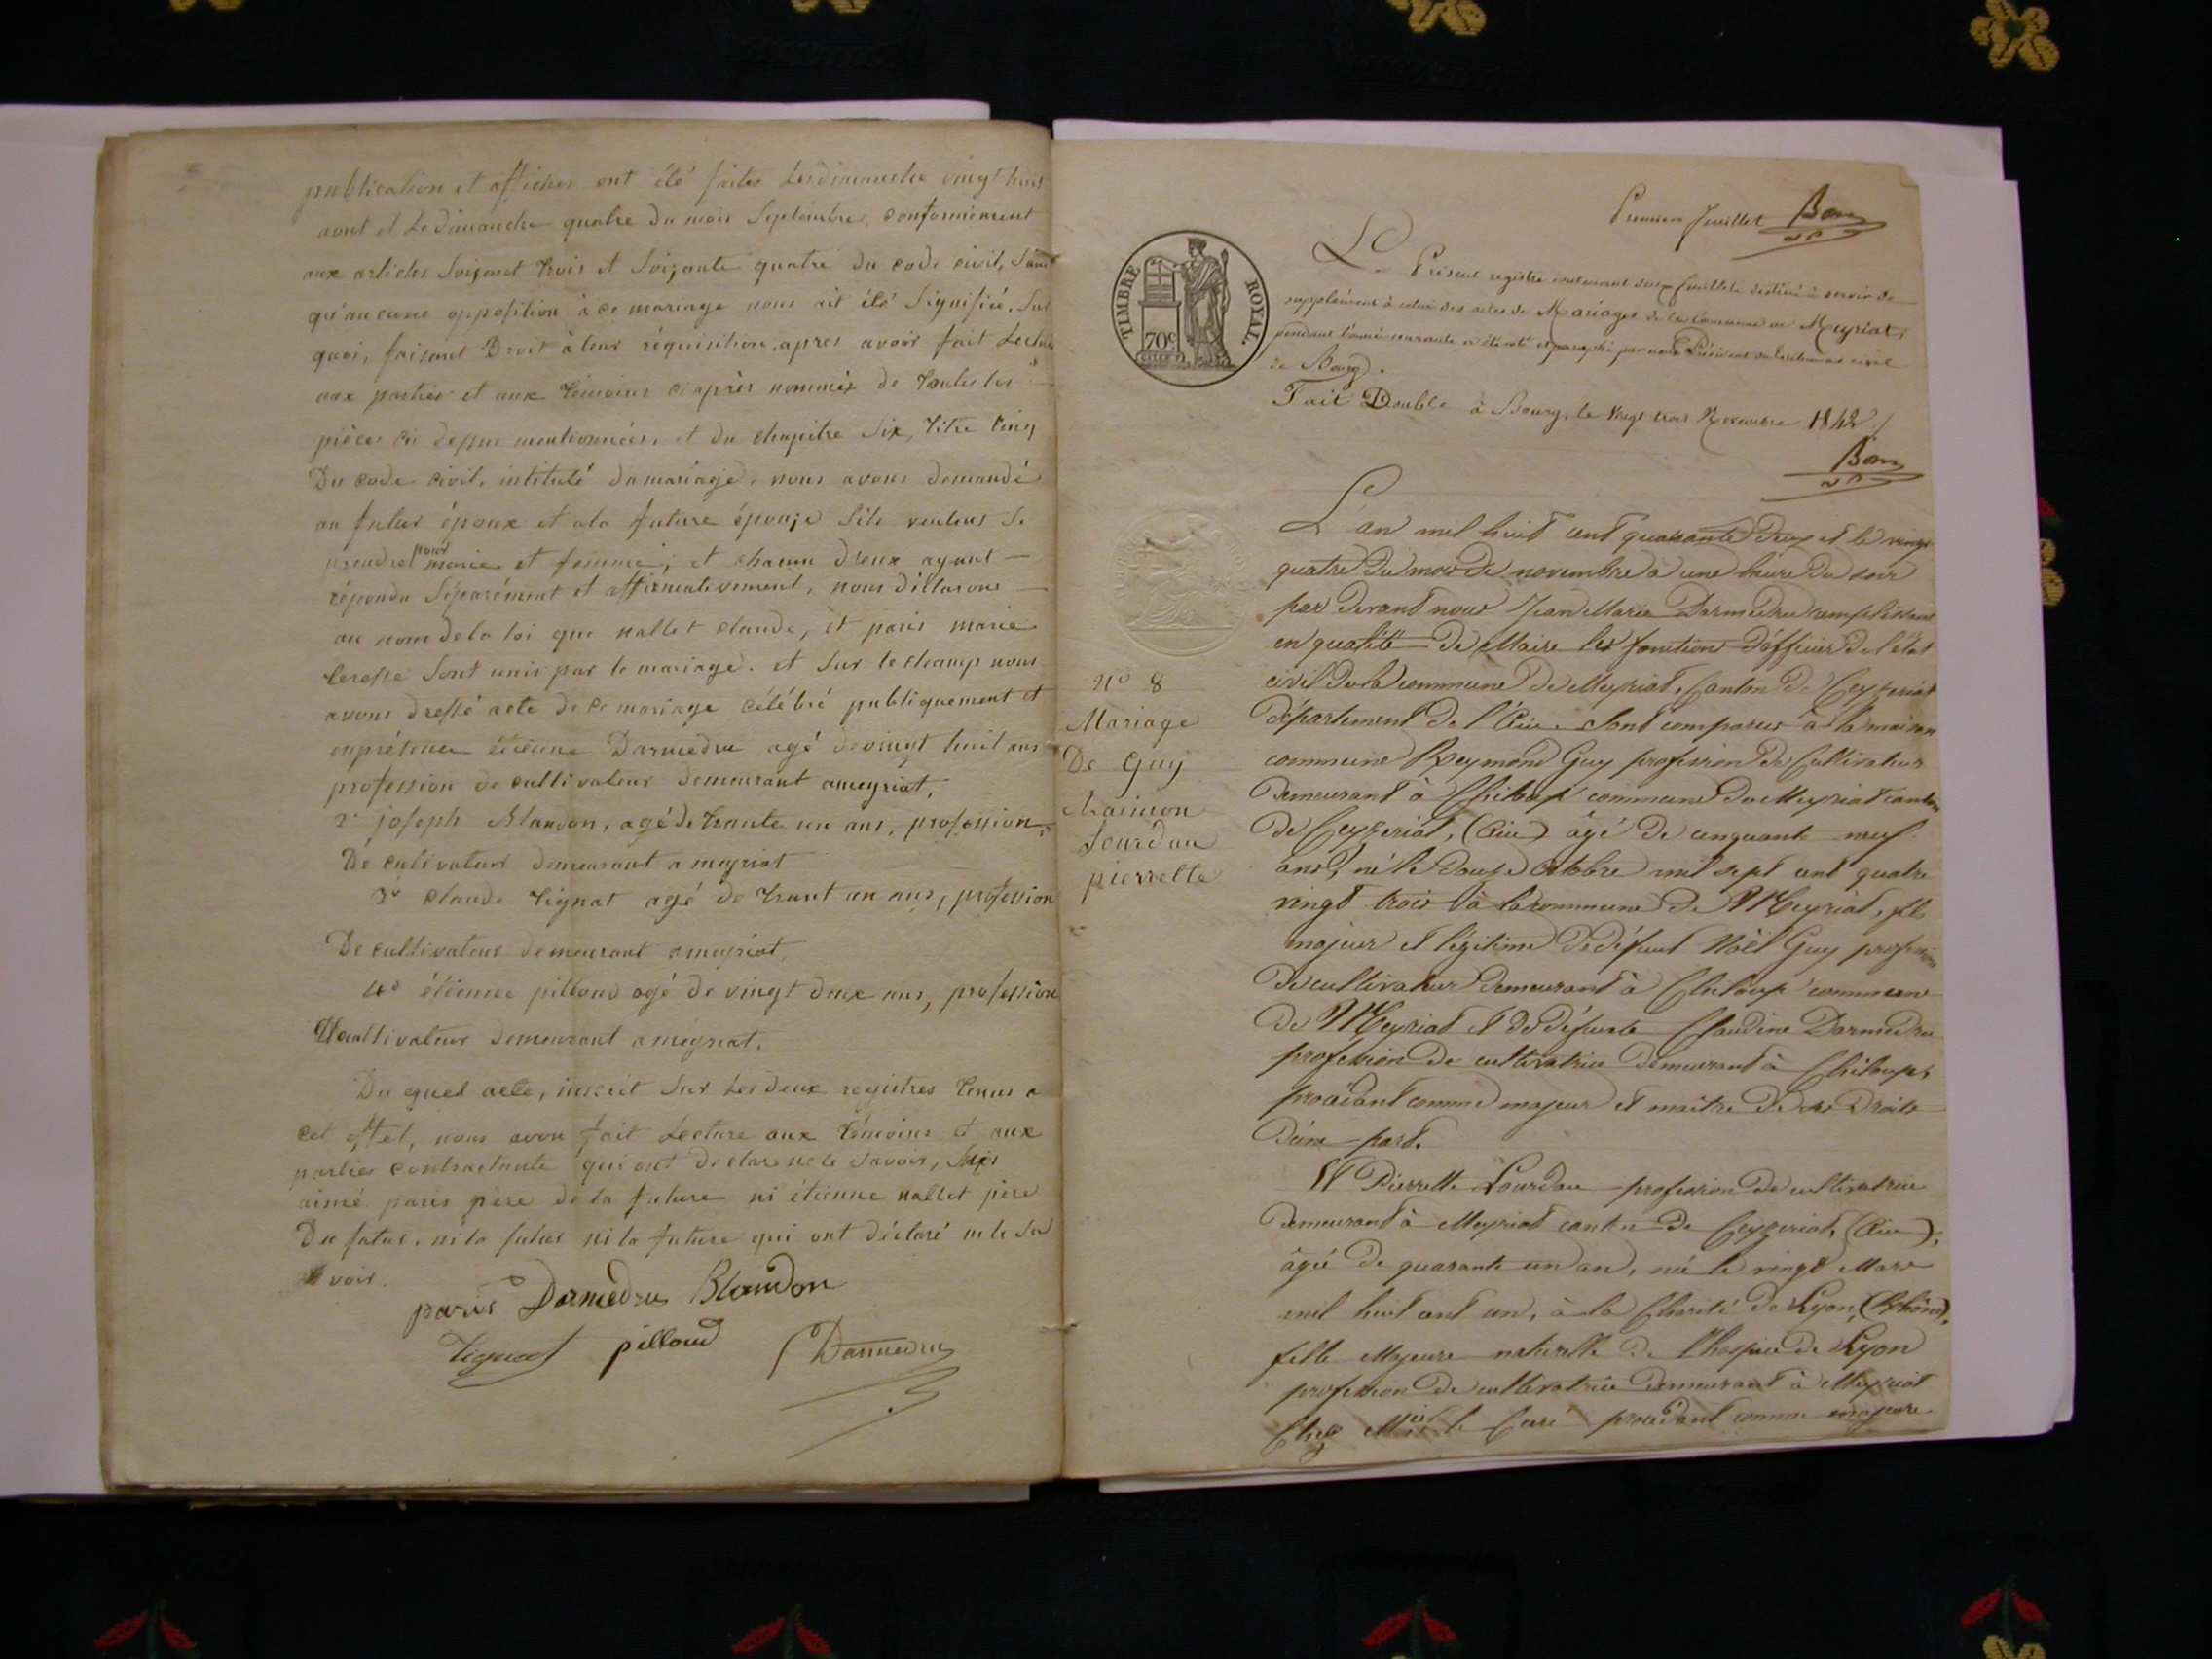 publication et affiches ont été faites Les dimanche vingt huit
aout et Le dimanche quatre du mois Septembre, conformément
aux articles Soixant trois et Soixante quatre du code civil, Sans
qu'aucune opposition à ce mariage nous ait été Signifié, Sur
quoi, faisant Droit à leur réquisition, apres avoir fait Lecture
aux parties et aux témoins ci après nommés de toutes les
pièces ci dessus mentionnées, et du chapitre Six, titre Cinq
Du code civil, intitulé du mariage, nous avons demandé
au futur époux et a la future épouse S'ils veulent Se
prendre pour marie et femme, et chacun d'eux ayant
répondu Séparément et affirmativement, nous déclarons
au nom de la loi que nallet claude, et paris marie
Sont unis par le mariage. et Sur le champ nous
avons dressé acte de ce mariage célébré publiquement et
enprésence étienne Darmedru agé de vingt huit ans
profession de cultivateur demeurant ameyriat,
2º joseph Blandon, agé de trante un ans, profession,
De cultivateur demeurant a meyriat
3º claude tignat agé de trant un ans, profession
De cultivateur demeurant a meyriat,
4º étienne pilloud agé de vingt deux ans, profession
De cultivateur demeurant a meyriat.
Du quel acte, inscrit Sur Les deux registres tenus a
cet effet, nous avon fait Lecture aux témoins et aux
parties contractante qui ont declare ne le Savoir,
aimé paris père de la future ni étienne nallet père
Du futur, ni le futur ni la future qui ont déclaré ne le Sa
voir.
paris Darmedru Blandon
Tignat pilloud Darmedru
Premier feuillet Bon
TIMBRE ROYAL.
70c
Le Présent registre contenant deux feuillets destiné à servir de
supplément à celui des actes de Mariages de la Commune de Meyriat,
pendant l'année courante a été coté et paraphé par nous Président du tribunal civil
de Bourg.
Fait Double à Bourg, le vingt trois Novembre 1842
Bon
L'an mil huit cent quarante deux et le vingt
quatre du mois de novembre à une heure du soir
par devant nous Jean Marie Darmedru remplissant
en qualité de Maire les fonctions d'officier de l'état
civil de la commune de Meyriat, Canton de Ceyzeriat
département de l'Ain. Sont comparus à la maison
commune Reymond Guy profession de Cultivateur
demeurant à Chiloup commune de Meyriat canton
de Ceyzeriat, (Ain) âgé de cinquante neuf
ans, né le douze Octobre mil sept cent quatre
vingt trois à la commune de Meyriat, fils
majeur et légitime de défunt Noël Guy profession
de cultivateur demeurant à Chiloup commune
de Meyriat et de défunte Claudine Darmedru
profession de cultivatrice demeurant à Chiloup,
procédant comme majeur et maître de ses Droits
D'une part.
Et Pierrette Lourdau profession de cultivatrice
demeurant à Meyriat canton de Ceyzeriat, (Ain),
âgée de quarante un an, née le vingt Mars
mil huit cent un, à la Charité de Lyon, (Rhône),
fille Majeure naturelle de l'hospice de Lyon
profession de cultivatrice demeurant à Meyriat
Chez Mr le Curé procédant comme majeure
Nº 8
Mariage
De Guy
Raimon
Lourdau
pierrette